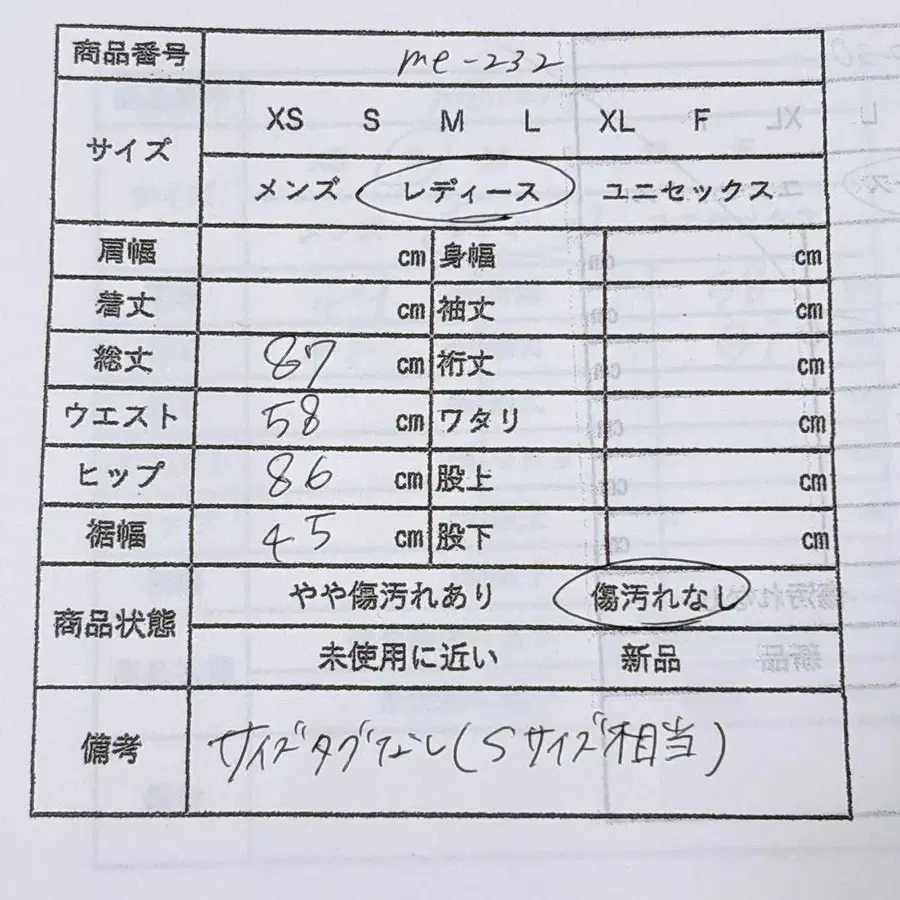 商品番号 me-232
サイズ XS S M L XL F
メンズ レディース ユニセックス
肩幅 cm 身幅 cm
着丈 cm 袖丈 cm
総丈 87 cm 裄丈 cm
ウエスト 58 cm ワタリ cm
ヒップ 86 cm 股上 cm
裾幅 45 cm 股下 cm
商品状態 やや傷汚れあり 傷汚れなし
未使用に近い 新品
備考 サイズタグなし(Sサイズ相当)